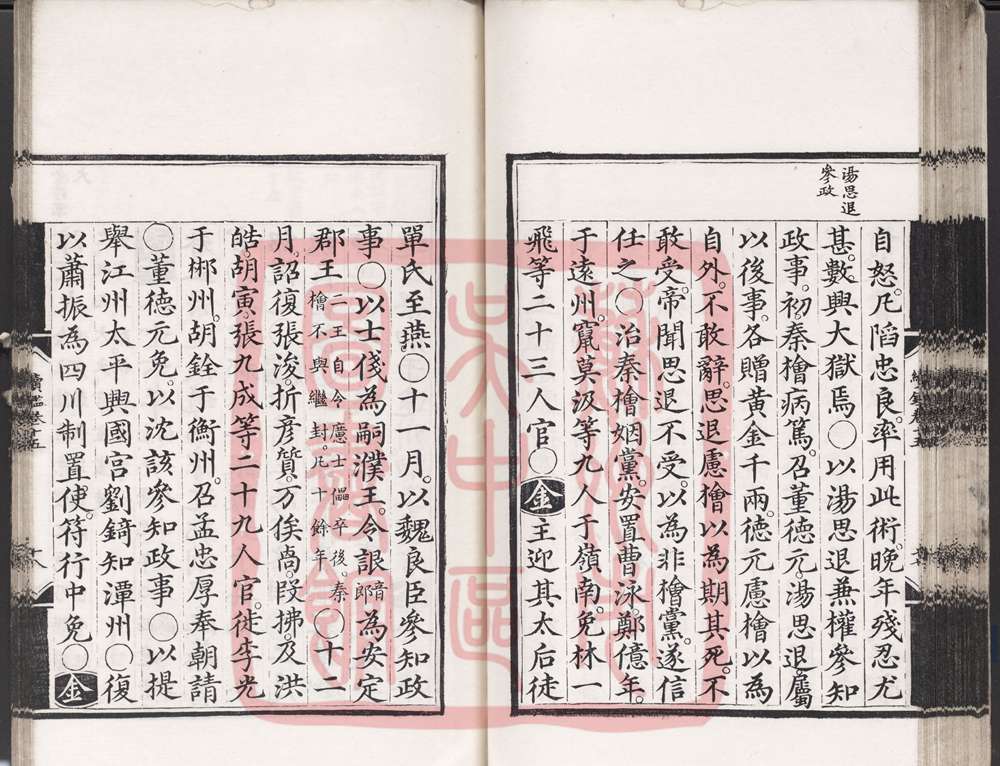 湯思退
參政
自怒。凡陷忠良。率用此術。晚年殘忍尤
甚。數興大獄焉。○以湯思退兼權參知
政事。初。秦檜病篤。召董德元。湯思退。屬
以後事。各贈黃金千兩。德元慮檜以為
自外。不敢辭。思退慮檜以為期其死。不
敢受。帝聞思退不受。以為非檜黨。遂信
任之。○治秦檜姻黨。安置曹泳。鄭億年。
于遠州。竄莫汲等九人于嶺南。免林一
飛等二十三人官。○金主迎其太后徒
單氏至燕。○十一月。以魏良臣參知政
事。○以士俴為嗣濮王。令詪音郎為安定
郡王二王自令懬士儡卒後。秦檜不與繼封凡十餘年。○十二
月。詔復張浚。折彥質。万俟卨。段拂。及洪
皓。胡寅。張九成等二十九人官。徙李光
于郴州。胡銓于衡州。召孟忠厚奉朝請
○董德元免。以沈該參知政事。○以提
舉江州太平興國宮劉錡知潭州。○復
以蕭振為四川制置使。符行中免。○金
十八